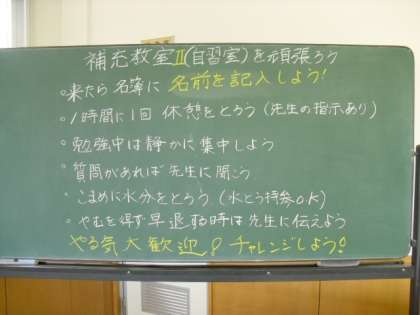 補充教室Ⅱ(自習室)を頑張ろう
。来たら名簿に 名前を記入しよう!
。1時間に1回 休憩をとろう(先生の指示あり)
。勉強中は静かに集中しよう
。質問があれば先生に聞こう
。こまめに水分をとろう(水とう持参OK)
。やむを得ず早退する時は先生に伝えよう
やる気大歓迎!チャレンジしよう!